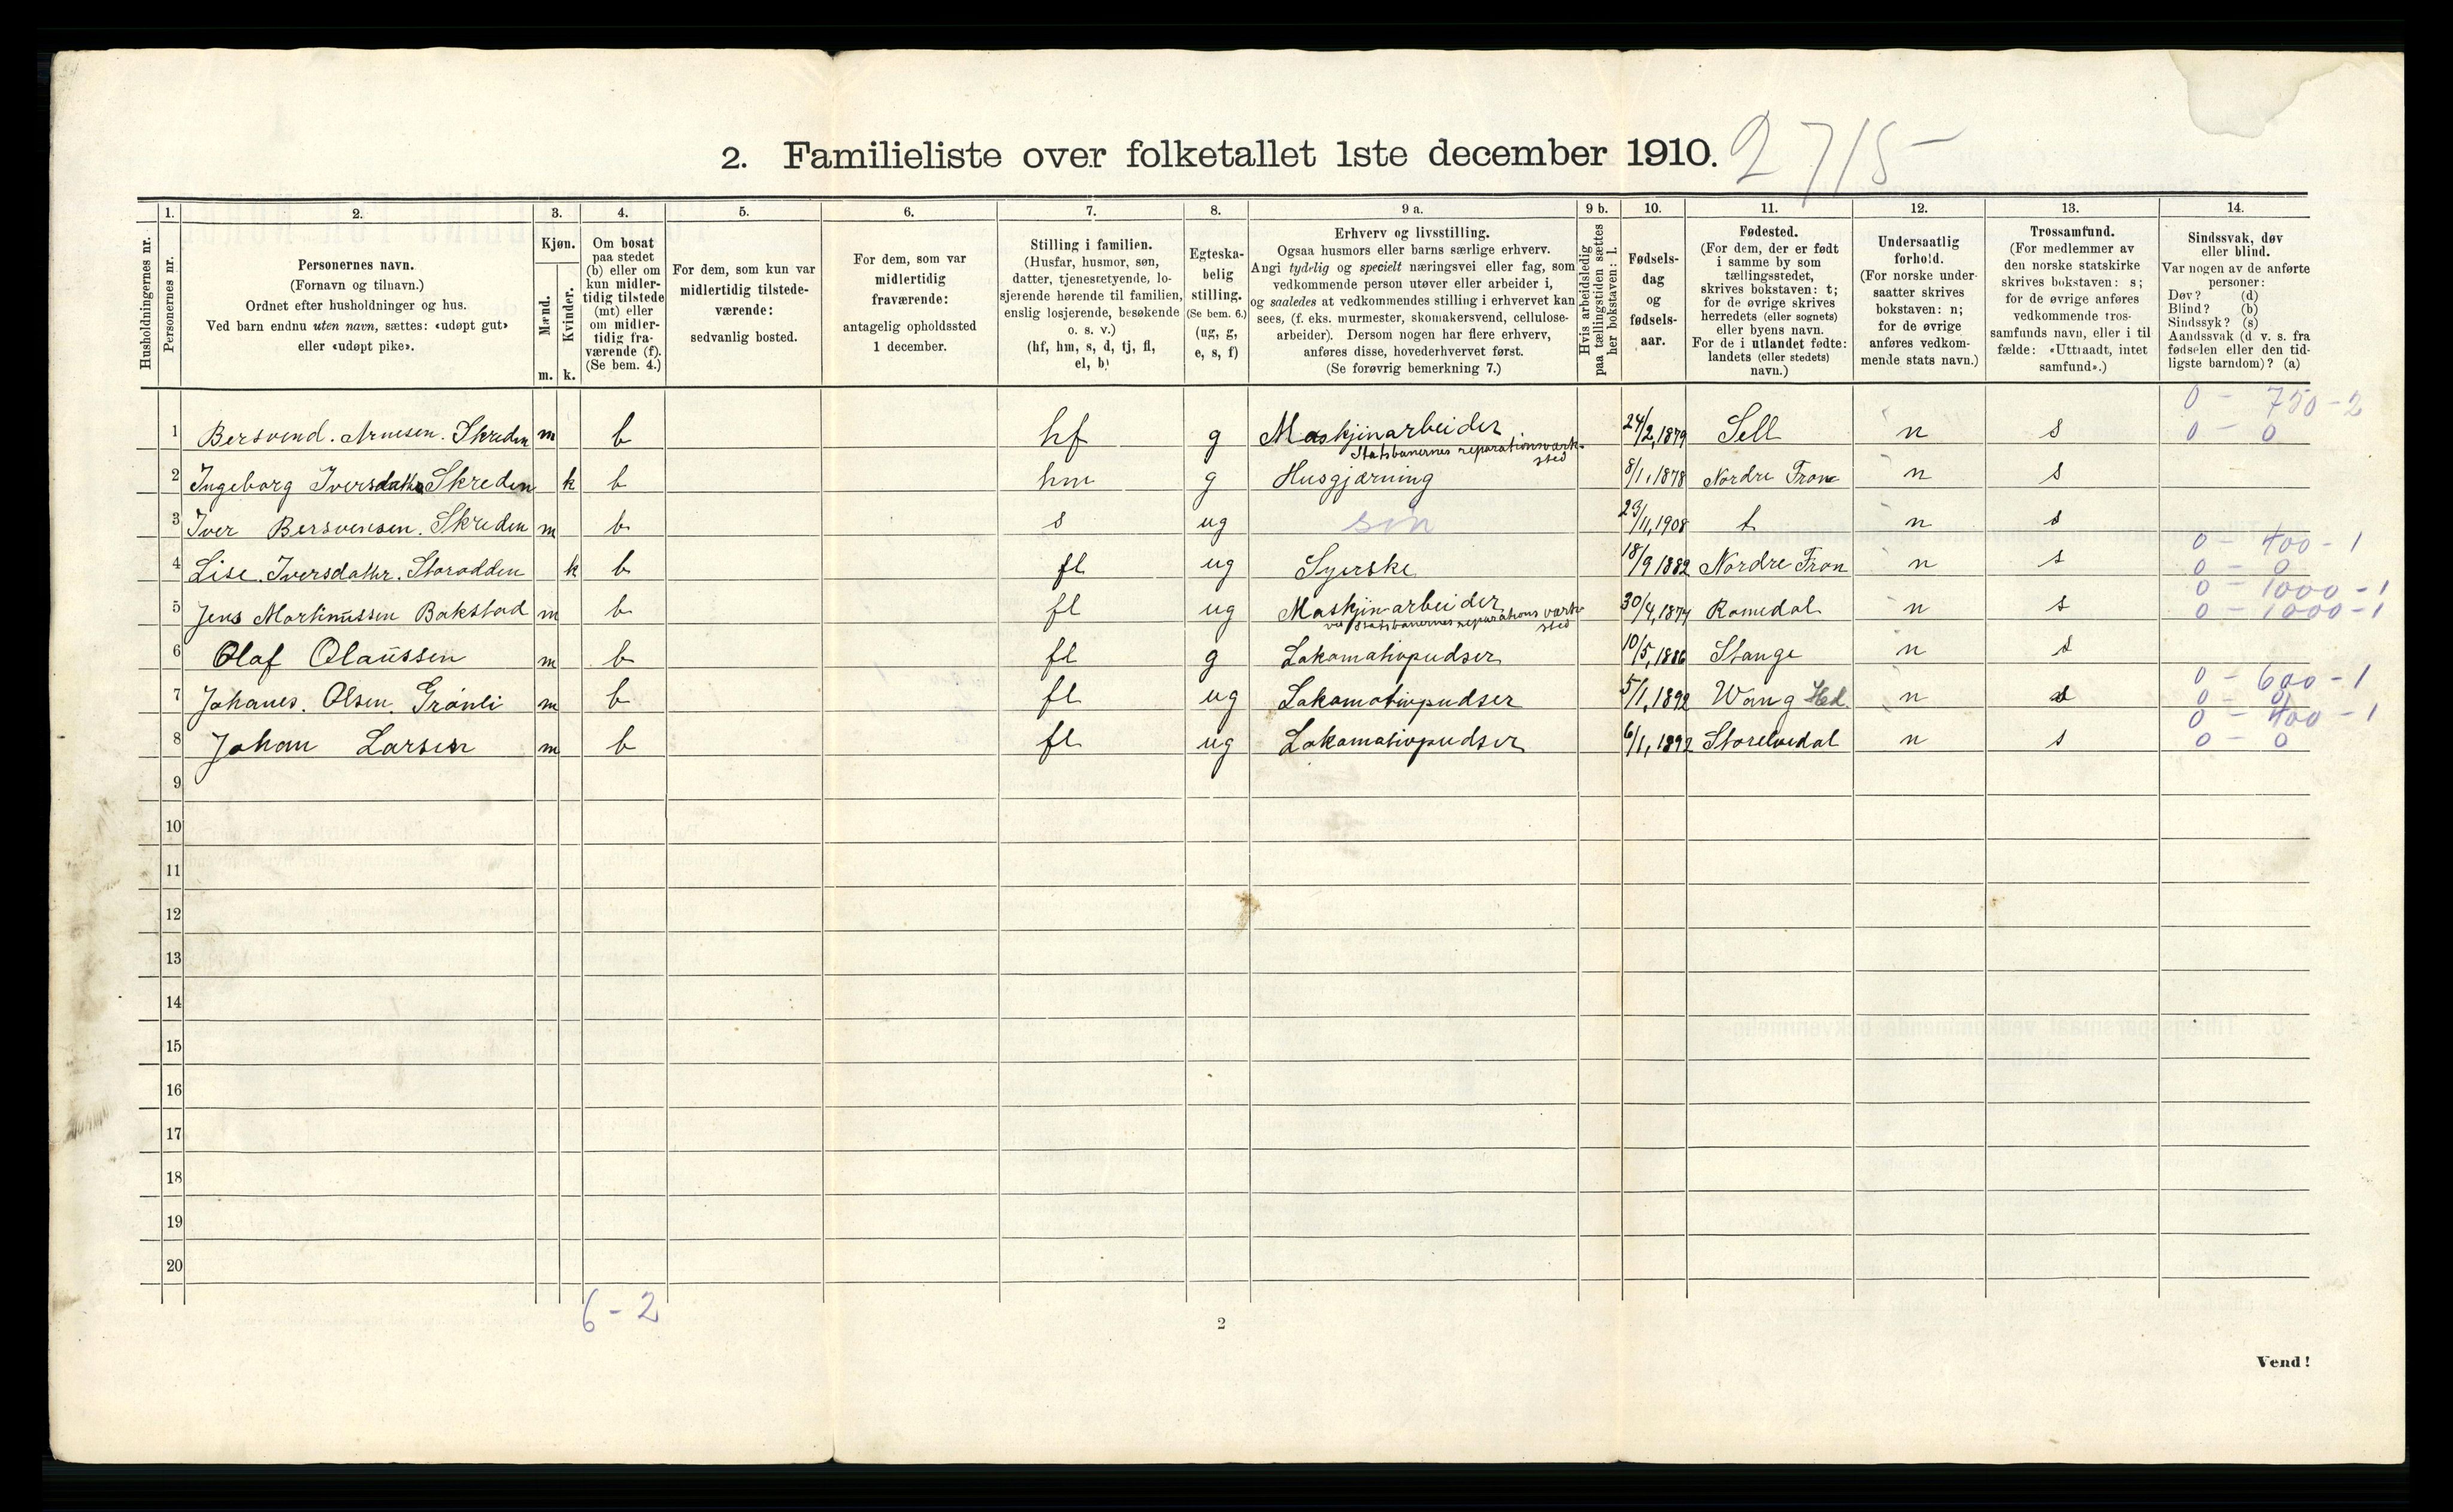 2. Familieliste over folketallet 1ste december 1910. 2715
Husholdningernes nr.
1.
Personernes nr.
2.
Personernes navn.
(Fornavn og tilnavn.)
Ordnet efter husholdninger og hus.
Ved barn endnu uten navn, sættes: «udøpt gut»
eller «udøpt pike».
3.
Kjøn.
Mænd.
Kvinder.
m. k.
4.
Om bosat
paa stedet
(b) eller om
kun midler-
tidig tilstede
(mt) eller
om midler-
tidig fra-
værende (f).
(Se bem. 4.)
5.
For dem, som kun var
midlertidig tilstede-
værende:
sedvanlig bosted.
6.
For dem, som var
midlertidig
fraværende:
antagelig opholdssted
1 december.
7.
Stilling i familien.
(Husfar, husmor, søn,
datter, tjenestetyende, lo-
sjerende hørende til familien,
enslig losjerende, besøkende
o. s. v.)
(hf, hm, s, d, tj, fl,
el, b)
8.
Egteska-
belig
stilling.
(Se bem. 6.)
(ug, g,
e, s, f)
9 a.
Erhverv og livsstilling.
Ogsaa husmors eller barns særlige erhverv.
Angi tydelig og specielt næringsvei eller fag, som
vedkommende person utøver eller arbeider i,
og saaledes at vedkommendes stilling i erhvervet kan
sees, (f. eks. murmester, skomakersvend, cellulose-
arbeider). Dersom nogen har flere erhverv,
anføres disse, hovederhvervet først.
(Se forøvrig bemerkning 7.)
9 b.
Hvis arbeidsledig
paa tællingstiden sættes
her bokstaven: l.
10.
Fødsels-
dag
og
fødsels-
aar.
11.
Fødested.
(For dem, der er født
i samme by som
tællingsstedet,
skrives bokstaven: t;
for de øvrige skrives
herredets (eller sognets)
eller byens navn.
For de i utlandet fødte:
landets (eller stedets)
navn.)
12.
Undersaatlig
forhold.
(For norske under-
saatter skrives
bokstaven: n;
for de øvrige
anføres vedkom-
mende stats navn.)
13.
Trossamfund.
(For medlemmer av
den norske statskirke
skrives bokstaven: s;
for de øvrige anføres
vedkommende tros-
samfunds navn, eller i til
fælde: «Uttraadt, intet
samfund».)
14.
Sindssvak, døv
eller blind.
Var nogen av de anførte
personer:
Døv? (d)
Blind? (b)
Sindssyk? (s)
Aandssvak (d. v. s. fra
fødselen eller den tid-
ligste barndom)? (a)
0 - 750 - 2
1 Bersvend. Arnesen. Skreden m b hf g Maskjinarbeider 24/2, 1879 Sell n s 0 - 0
Statsbanernes reparationsværk-
sted
2 Ingeborg Iversdatter Skreden k b hm g Husgjærning 8/1, 1878 Nordre Fron n s
3 Iver Bersvensen. Skreden m b s ug søn 23/11, 1908 t n s
0 - 400 - 1
4 Lise. Iversdathr. Storodden k b fl ug Syerske 18/9 1882 Nordre Fron n s 0 - 0
0 - 1000 - 1
5 Jens Martinussen Bakstad m b fl ug Maskjinarbeider 30/4, 1874 Romedal n s 0 - 1000 - 1
ved Statsbanernes reparations værk
sted
6 Olaf Olaussen m b fl g Lokomativpudser 10/5, 1886 Stange n s
0 - 600 - 1
7 Johanes. Olsen. Grönli m b fl ug Lokomotivpudser 5/1, 1892 Wang Hed. n s 0 - 0
0 - 400 - 1
8 Johan Larsen m b fl ug Lokomativpudser 6/1, 1892 Storelvedal n s 0 - 0
9
10
11
12
13
14
15
16
17
18
19
20
6 - 2
2
Vend!